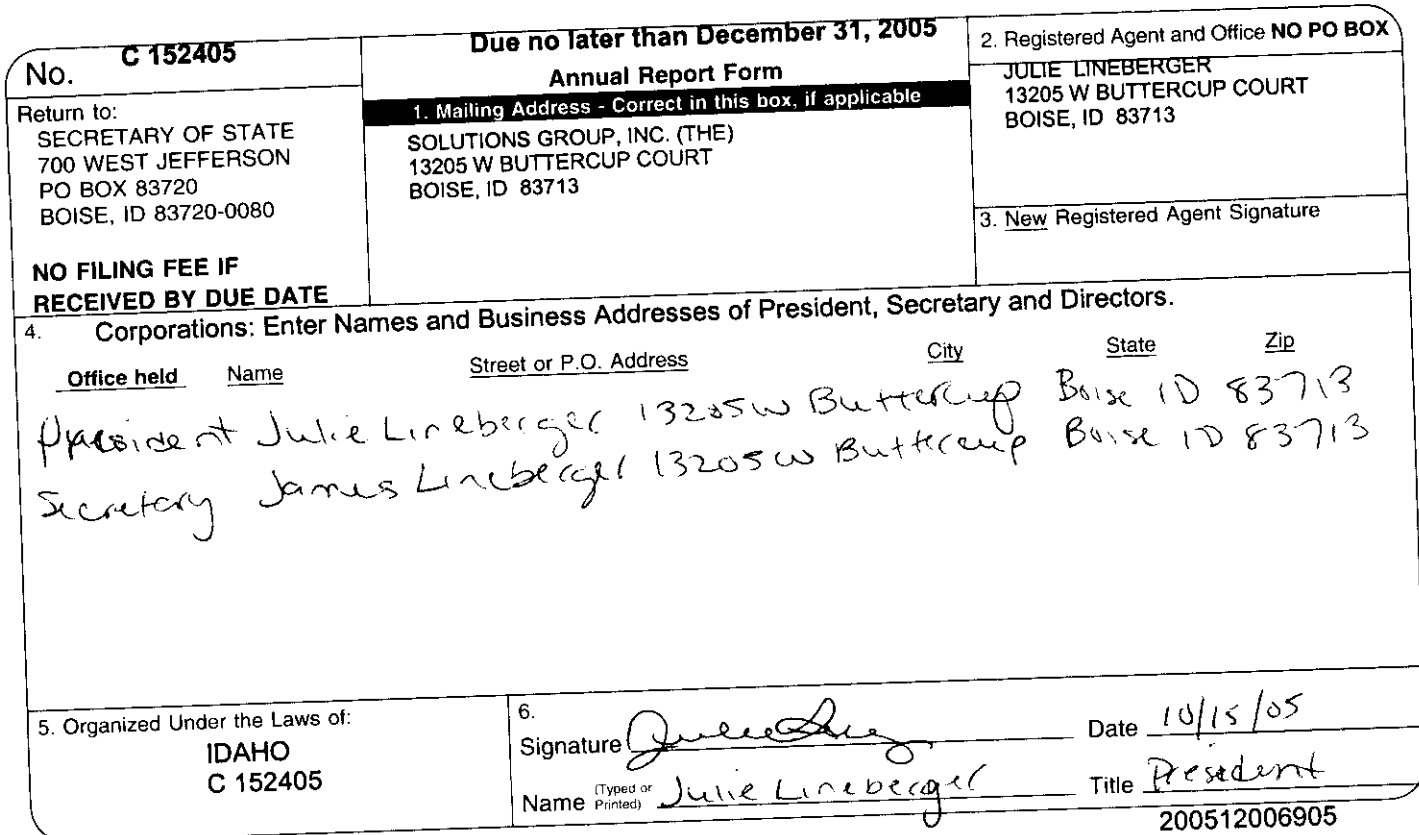 No. C 152405
Return to:
SECRETARY OF STATE
700 WEST JEFFERSON
PO BOX 83720
BOISE, ID 83720-0080
NO FILING FEE IF
RECEIVED BY DUE DATE
Due no later than December 31, 2005
Annual Report Form
1. Mailing Address - Correct in this box, if applicable
SOLUTIONS GROUP, INC. (THE)
13205 W BUTTERCUP COURT
BOISE, ID 83713
2. Registered Agent and Office NO PO BOX
JULIE LINEBERGER
13205 W BUTTERCUP COURT
BOISE, ID 83713
3. New Registered Agent Signature
4. Corporations: Enter Names and Business Addresses of President, Secretary and Directors.
Office held Name Street or P.O. Address City State Zip
President Julie Lineberger 13205 W Buttercup Boise ID 83713
Secretary James Lineberger 13205 W Buttercup Boise ID 83713
5. Organized Under the Laws of:
IDAHO
C 152405
6.
Signature Date 10/15/05
Name (Typed or Printed) Julie Lineberger Title President
200512006905